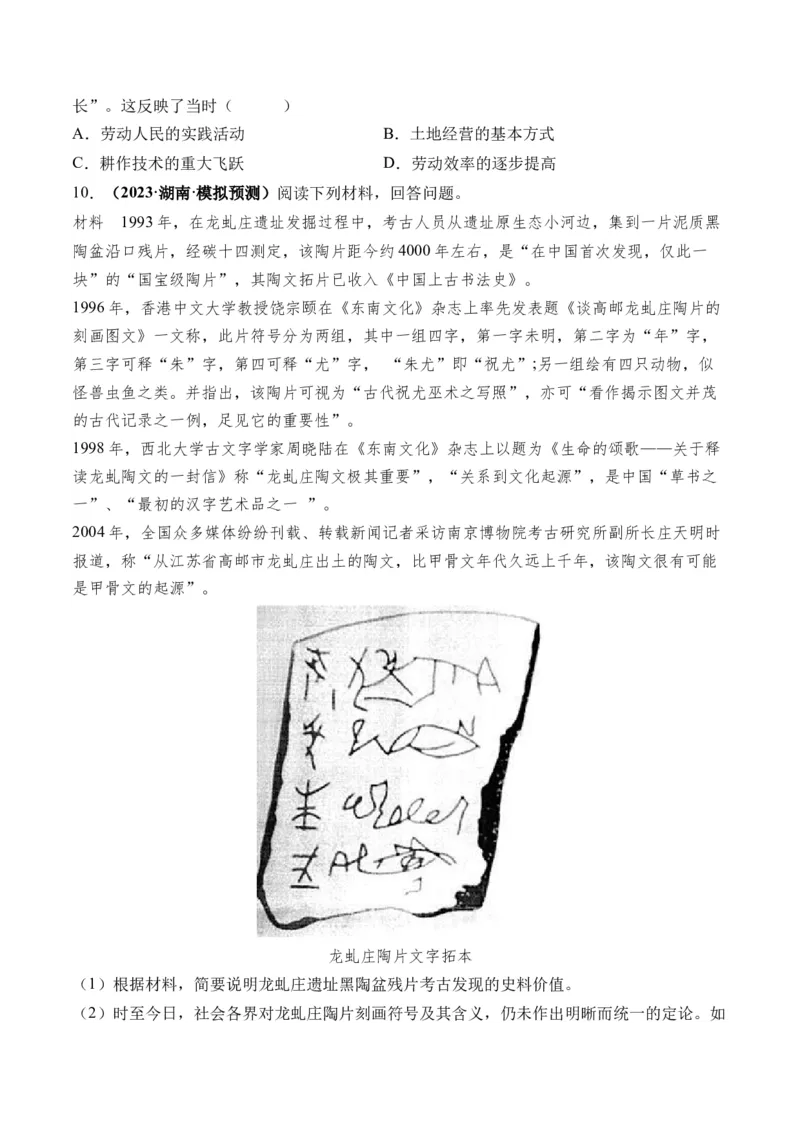 长”。这反映了当时（ ）
A．劳动人民的实践活动 B．土地经营的基本方式
C．耕作技术的重大飞跃 D．劳动效率的逐步提高
10．（2023·湖南·模拟预测）阅读下列材料，回答问题。
材料 1993年，在龙虬庄遗址发掘过程中，考古人员从遗址原生态小河边，集到一片泥质黑
陶盆沿口残片，经碳十四测定，该陶片距今约4000年左右，是“在中国首次发现，仅此一
块”的“国宝级陶片”，其陶文拓片已收入《中国上古书法史》。
1996年，香港中文大学教授饶宗颐在《东南文化》杂志上率先发表题《谈高邮龙虬庄陶片的
刻画图文》一文称，此片符号分为两组，其中一组四字，第一字未明，第二字为“年”字，
第三字可释“朱”字，第四可释“尤”字， “朱尤”即“祝尤”;另一组绘有四只动物，似
怪兽虫鱼之类。并指出，该陶片可视为“古代祝尤巫术之写照”，亦可“看作揭示图文并茂
的古代记录之一例，足见它的重要性”。
1998年，西北大学古文字学家周晓陆在《东南文化》杂志上以题为《生命的颂歌——关于释
读龙虬陶文的一封信》称“龙虬庄陶文极其重要”，“关系到文化起源”，是中国“草书之
一”、“最初的汉字艺术品之一 ”。
2004年，全国众多媒体纷纷刊载、转载新闻记者采访南京博物院考古研究所副所长庄天明时
报道，称“从江苏省高邮市龙虬庄出土的陶文，比甲骨文年代久远上千年，该陶文很有可能
是甲骨文的起源”。
龙虬庄陶片文字拓本
（1）根据材料，简要说明龙虬庄遗址黑陶盆残片考古发现的史料价值。
（2）时至今日，社会各界对龙虬庄陶片刻画符号及其含义，仍未作出明晰而统一的定论。如